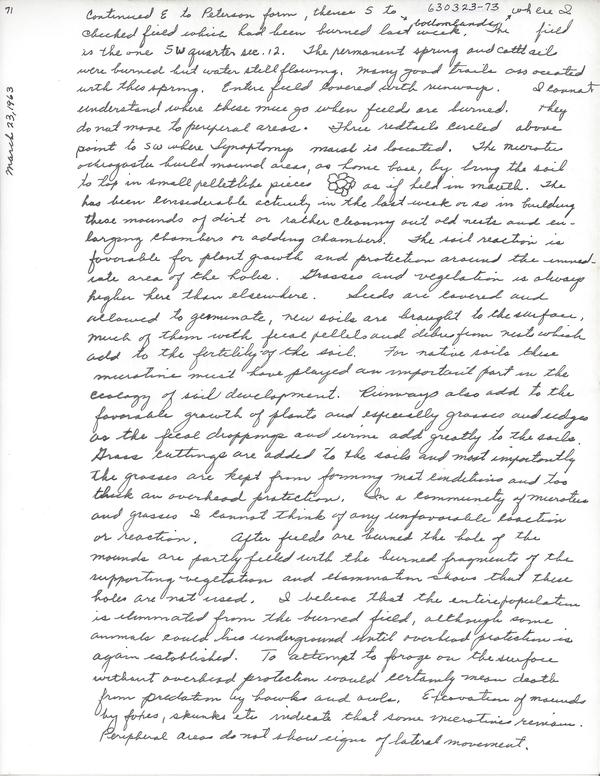 71
March 23, 1963
630323-73
Continued E to Peterson farm, thence S to bottomlands, where I
checked field which had been burned last week. The field
is the one SW quarter sec. 12. The permanent spring and cattails
were burned but water still flowing. Many good trails associated
with this spring. Entire field covered with runways. I cannot
understand where these mice go when fields are burned. They
do not move to periperal areas. Three redtails circled above
point to SW where Synaptomys marsh is located. The Microtus
ochrogaster build mound areas, as home base, by bring the soil
to top in small pelletlike pieces as if held in mouth. The
has been considerable activity in the last week or so in building
these mounds of dirt or rather cleaning out old nests and en-
larging chambers or adding chambers. The soil reaction is
favorable for plant growth and protection around the immed-
iate area of the holes. Grasses and vegetation is always
higher here than elsewhere. Seeds are covered and
allowed to germinate, new soils are brought to the surface,
much of them with fecal pellets and debris from nests which
add to the fertility of the soil. For native soils these
microtine must have played an important part in the
ecology of soil development. Runways also add to the
favorable growth of plants and especially grasses and sedges
as the fecal droppings and urine add greatly to the soils.
Grass cuttings are added to the soils and most importantly
the grasses are kept from forming mat conditions and too
thick an overhead protection. In a community of microtus
and grasses I cannot think of any unfavorable coaction
or reaction. After fields are burned the hole of the
mounds are partly filled with the burned fragments of the
supporting vegetation and examination shows that these
holes are not used. I believe that the entire population
is eliminated from the burned field, although some
animals could live underground until overhead protection is
again established. To attempt to forage on the surface
without overhead protection would certainly mean death
from predation by hawks and owls. Excavation of mounds
by foxes, skunks etc indicate that some microtines remain.
Periperal areas do not show signs of lateral movement.